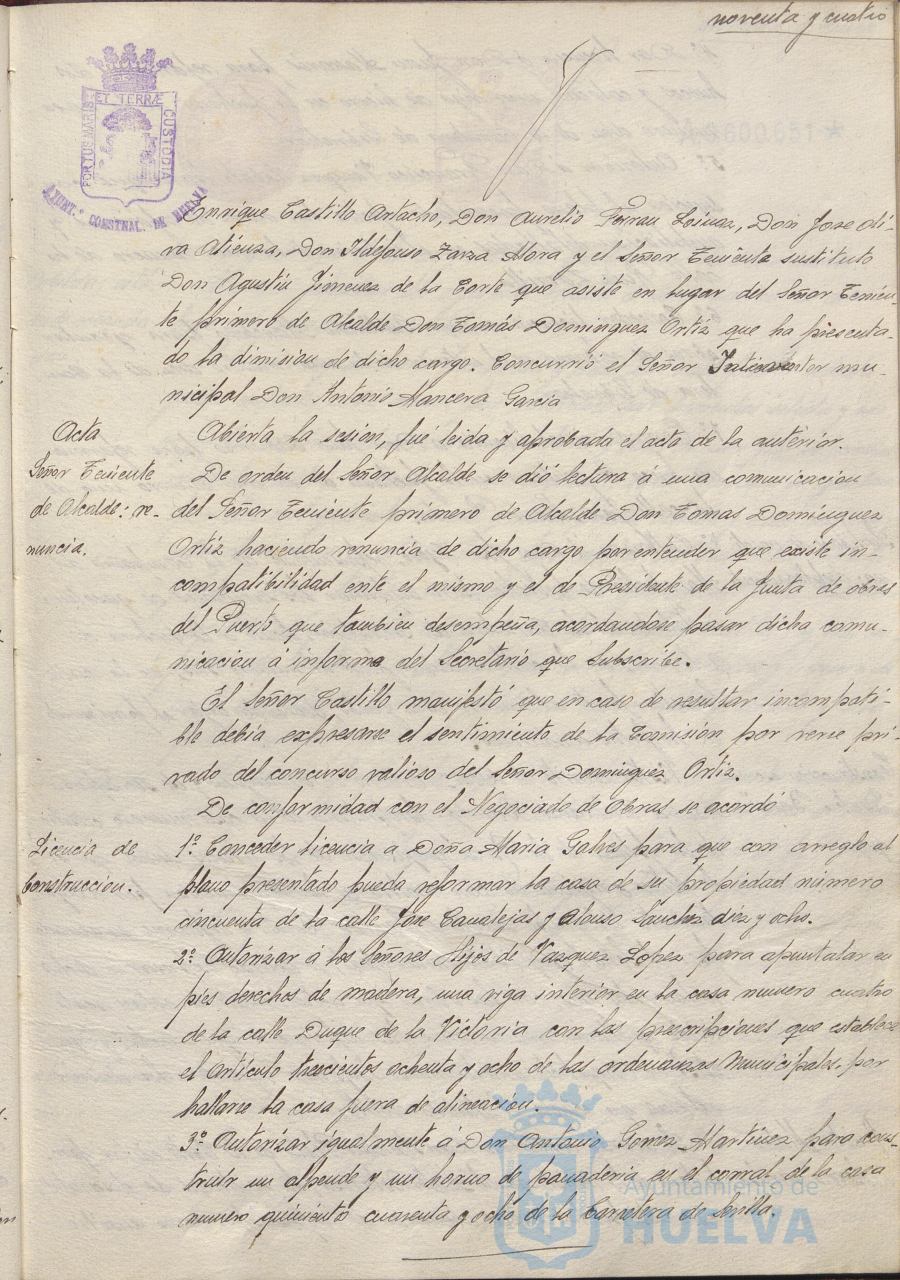 noventa y cuatro
PORTUS MARIS ET TERRÆ CUSTODIA
AYUNT.º CONSTNAL. DE HUELVA
Enrique Castillo Artacho, Don Aurelio Ferrau Loinaz, Don Jose Oli-
va Atienza, Don Ildefonso Zarza Mora y el Señor Teniente sustituto
Don Agustin Jimenez de la Corte que asiste en lugar del Señor Tenien-
te primero de Alcalde Don Tomás Dominguez Ortiz que ha presenta-
do la dimision de dicho cargo. Concurrió el Señor Interventor mu-
nicipal Don Antonio Mancera Garcia
Acta
Abierta la sesion, fué leida y aprobada el acta de la anterior.
Señor Teniente
de Alcalde: re-
nuncia.
De orden del Señor Alcalde se dió lectura á una comunicacion
del Señor Teniente primero de Alcalde Don Tomas Dominguez
Ortiz haciendo renuncia de dicho cargo por entender que existe in-
compatibilidad ente el mismo y el de Presidente de la Junta de obras
del Puerto que tambien desempeña, acordandose pasar dicha comu-
nicacion á informe del Secretario que Subscribe.
El Señor Castillo manifestó que en caso de resultar incompati-
ble debia expresarse el sentimiento de la Comisión por verse pri-
vado del concurso valioso del Señor Dominguez Ortiz.
De conformidad con el Negociado de Obras se acordó
Licencia de
Construccion.
1º Conceder licencia a Doña Maria Galves para que con arreglo al
plano presentado pueda reformar la casa de su propiedad número
cincuenta de la calle Jose Canalejas y Alonso Sanchez diez y ocho.
2º Autorizar á los Señores Hijos de Vazquez Lopez para apuntalar en
pies derechos de madera, una viga interior en la casa numero cuatro
de la calle Duque de la Victoria con las prescripciones que establece
el Artículo trescientos ochenta y ocho de las ordenanzas Municipales, por
hallarse la casa fuera de alineación.
3º Autorizar igualmente á Don Antonio Gomez Martinez para cons-
truir un alpende y un horno de panaderia en el corral de la casa
numero quiniento cuarenta y ocho de la Carretera de Sevilla.
Ayuntamiento de
HUELVA